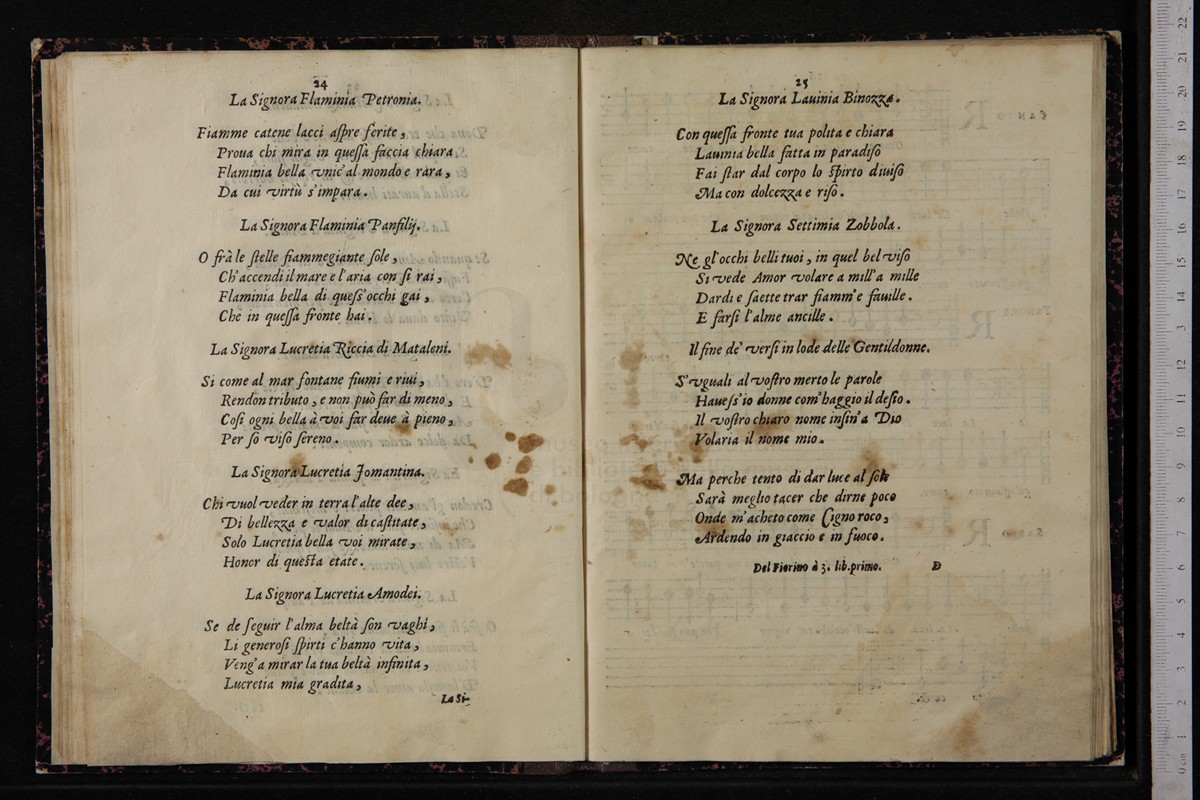 24
La Signora Flaminia Petronia.
Fiamme catene lacci aſpre ferite,
Proua chi mira in queſſa faccia chiara
Flaminia bella vnic'al mondo e rara,
Da cui virtù s'impara.
La Signora Flaminia Panfilij.
O frà le ſtelle fiammegiante ſole,
Ch'accendi il mare e l'aria con ſi rai,
Flaminia bella di queſs'occhi gai,
Che in queſſa fronte hai.
La Signora Lucretia Riccia di Mataleni.
Si come al mar fontane fiumi e riui,
Rendon tributo, e non può far di meno,
Coſi ogni bella à voi far deue à pieno,
Per ſo viſo ſereno.
La Signora Lucretia Jomantina.
Chi vuol veder in terra l'alte dee,
Di bellezza e valor di caſtitate,
Solo Lucretia bella voi mirate,
Honor di queſta etate.
La Signora Lucretia Amodei.
Se de ſeguir l'alma beltà ſon vaghi,
Li generoſi ſpirti c'hanno vita,
Veng'a mirar la tua beltà infinita,
Lucretia mia gradita,
La Si-
25
La Signora Lauinia Binozza.
Con queſſa fronte tua polita e chiara
Lauinia bella fatta in paradiſo
Fai ſtar dal corpo lo ſpirto diuiſo
Ma con dolcezza e riſo.
La Signora Settimia Zobbola.
Ne gl'occhi belli tuoi, in quel bel viſo
Si vede Amor volare a mill'a mille
Dardi e ſaette trar fiamm'e fauille.
E farſi l'alme ancille.
Il fine de' verſi in lode delle Gentildonne.
S'vguali al voſtro merto le parole
Haueſs'io donne com'haggio il deſio.
Il voſtro chiaro nome inſin'a Dio
Volaria il nome mio.
Ma perche tento di dar luce al ſole
Sarà meglio tacer che dirne poco
Onde m'acheto come Cigno roco,
Ardendo in giaccio e in fuoco.
Del Fiorino à 3. lib. primo.
D